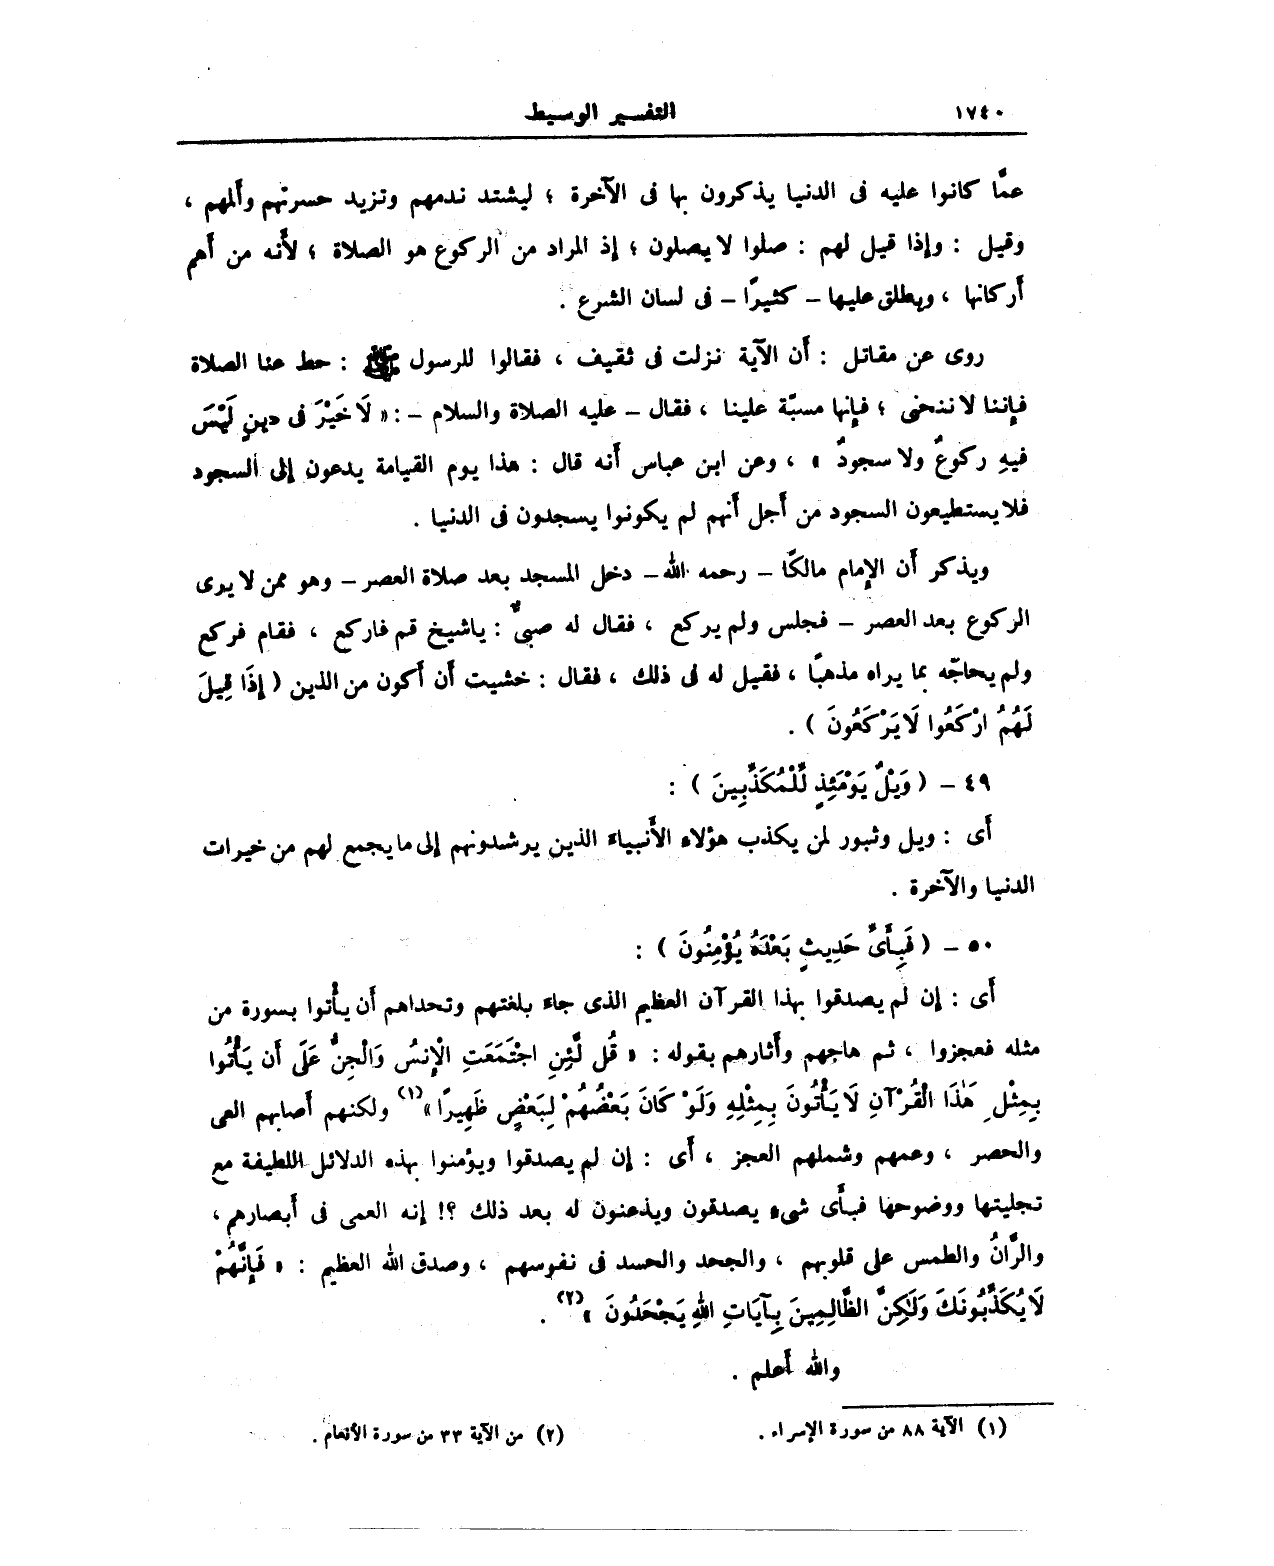 ١٧٤٠ التفسير الوسيط
عمَّا كانوا عليه فى الدنيا يذكرون بها فى الآخرة ؛ ليشتد ندمهم وتزيد حسرتهم وألمهم ،
وقيل : وإذا قيل لهم : صلوا لا يصلون ؛ إذ المراد من الركوع هو الصلاة ؛ لأنه من أهم
أركانها ، ويطلق عليها – كثيرًا – فى لسان الشرع .
روى عن مقاتل : أن الآية نزلت فى ثقيف ، فقالوا للرسول ﷺ : حط عنا الصلاة
فإننا لا ننحنى ؛ فإنها مسبّة علينا ، فقال – عليه الصلاة والسلام – : « لَا خَيْرَ فى دينٍ لَيْسَ
فيهِ ركوعٌ ولا سجودٌ » ، وعن ابن عباس أنه قال : هذا يوم القيامة يدعون إلى السجود
فلا يستطيعون السجود من أجل أنهم لم يكونوا يسجدون فى الدنيا .
ويذكر أن الإمام مالكًا – رحمه الله – دخل المسجد بعد صلاة العصر – وهو ممن لا يرى
الركوع بعد العصر – فجلس ولم يركع ، فقال له صبىٌّ : ياشيخ قم فاركع ، فقام فركع
ولم يحاجّه بما يراه مذهبًا ، فقيل له فى ذلك ، فقال : خشيت أن أكون من الذين ( إِذَا قِيلَ
لَهُمُ ارْكَعُوا لَا يَرْكَعُونَ ) .
٤٩ – ( وَيْلٌ يَوْمَئِذٍ لِّلْمُكَذِّبِينَ ) :
أى : ويل وثبور لمن يكذب هؤلاء الأنبياء الذين يرشدونهم إلى ما يجمع لهم من خيرات
الدنيا والآخرة .
٥٠ – ( فَبِأَىِّ حَدِيثٍ بَعْدَهُ يُؤْمِنُونَ ) :
أى : إن لم يصدقوا بهذا القرآن العظيم الذى جاء بلغتهم وتحداهم أن يأْتوا بسورة من
مثله فعجزوا ، ثم هاجهم وأثارهم بقوله : « قُل لَّئِنِ اجْتَمَعَتِ الْإِنسُ وَالْجِنُّ عَلَى أَن يَأْتُوا
بِمِثْلِ هَٰذَا الْقُرْآنِ لَا يَأْتُونَ بِمِثْلِهِ وَلَوْ كَانَ بَعْضُهُمْ لِبَعْضٍ ظَهِيرًا »(١) ولكنهم أصابهم العى
والحصر ، وعمهم وشملهم العجز ، أى : إن لم يصدقوا ويؤمنوا بهذه الدلائل اللطيفة مع
تجليتها ووضوحها فبأى شىء يصدقون ويذعنون له بعد ذلك ؟! إنه العمى فى أبصارهم ،
والرَّانُ والطمس على قلوبهم ، والجحد والحسد فى نفوسهم ، وصدق الله العظيم : « فَإِنَّهُمْ
لَا يُكَذِّبُونَكَ وَلَٰكِنَّ الظَّالِمِينَ بِآيَاتِ اللهِ يَجْحَدُونَ »(٢) .
والله أعلم .
(١) الآية ٨٨ من سورة الإسراء . (٢) من الآية ٣٣ من سورة الأنعام .